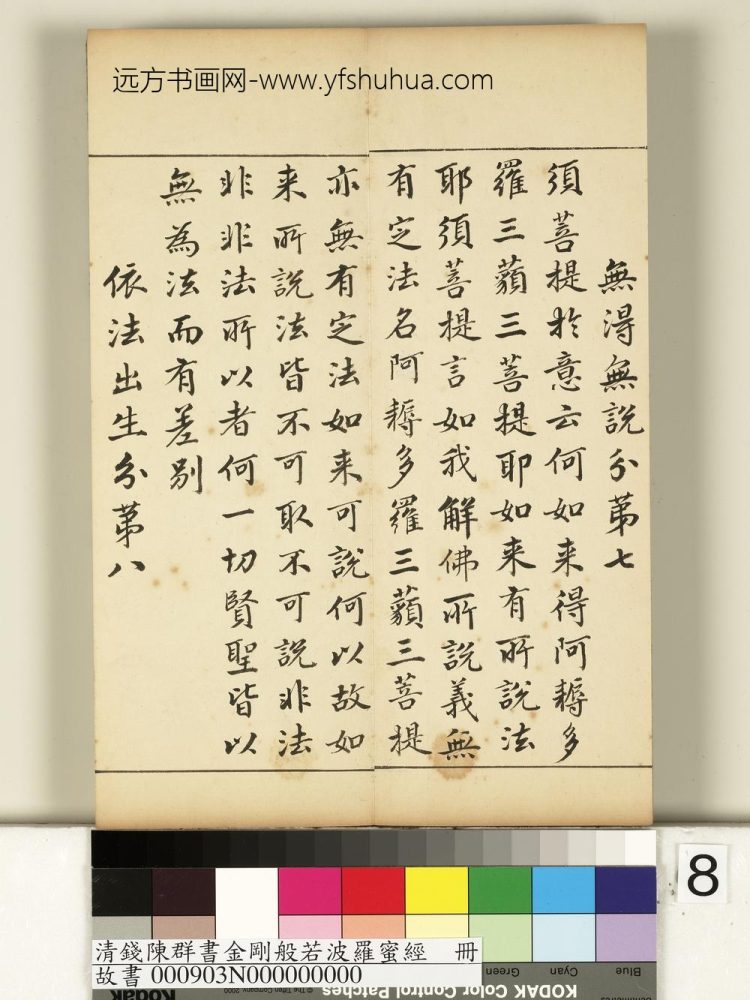 远方书画网-www.yfshuhua.com
無得無說分第七
須菩提於意云何如来得阿耨多
羅三藐三菩提耶如来有所說法
耶須菩提言如我解佛所說義無
有定法名阿耨多羅三藐三菩提
亦無有定法如来可說何以故如
来所說法皆不可取不可說非法
非非法所以者何一切賢聖皆以
無為法而有差别
依法出生分第八
8
清錢陳群書金剛般若波羅蜜經 冊
故書 000903N000000000
Green Cyan Blue
KODAK Color Control Patches